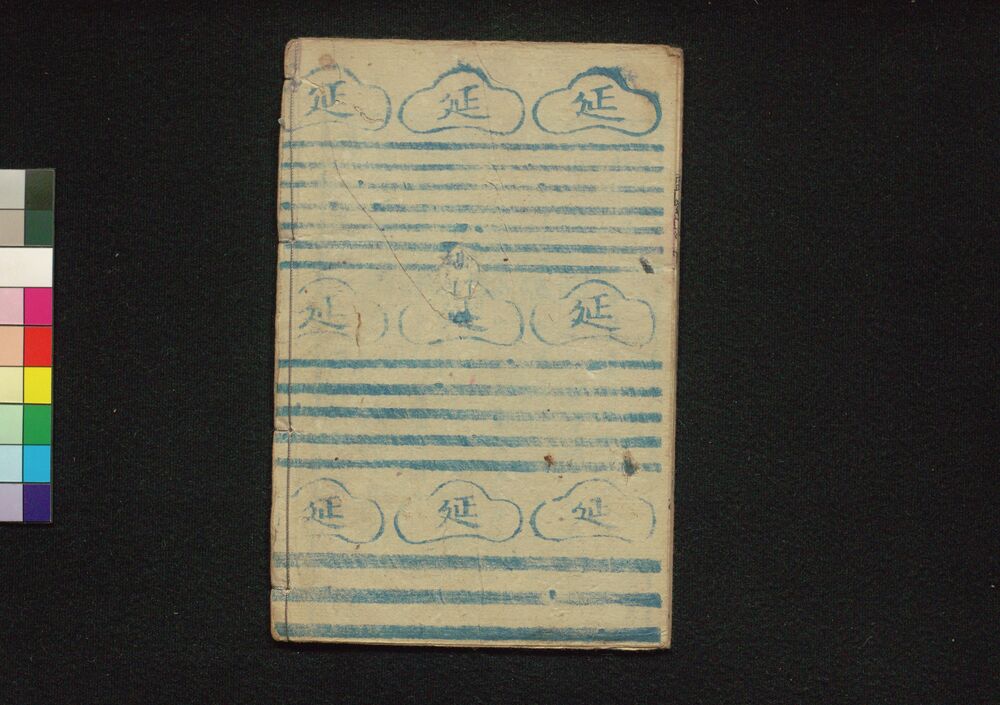 延 延 延
延 延 延
延 延 延